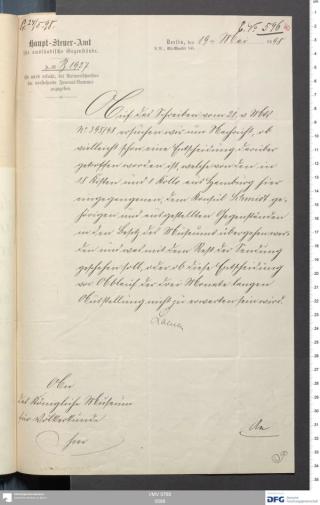 E. № 596/98
pr. 24/5. 98.
Haupt-Steuer-Amt
für ausländische Gegenstände.
J.-№ B 1927
Es wird ersucht, bei Antwortschreiben
die vorstehende Journal-Nummer
anzugeben.
Berlin, den 19ten Mai 1898
Auf das Schreiben vom 28. v. Mts.
№ 393/98 ersuchen wir um Nachricht, ob
vielleicht schon eine Entscheidung darüber
getroffen worden ist, welche von den in
18 Kisten und 1 Kollo aus Hamburg hier
eingegangenen, dem Konsul Schmidt ge-
hörigen und ausgestellten Gegenständen
in den Besitz des Museums übergehen wer-
den und was mit dem Rest der Sendung
geschehen soll, oder ob diese Entscheidung
vor Ablauf der drei Monate langen
Ausstellung nicht zu erwarten sein wird.
An
das Königliche Museum
für Völkerkunde
hier
VMV 0760
DFG